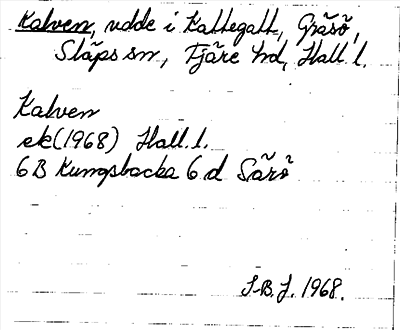 Kalven, udde i Kattegatt, Gräsö,
Släps sn, Fjäre hd, Hall. l.
Kalven
ek (1968) Hall. l.
6B Kungsbacka 6 d Särö
S-B. J. 1968.